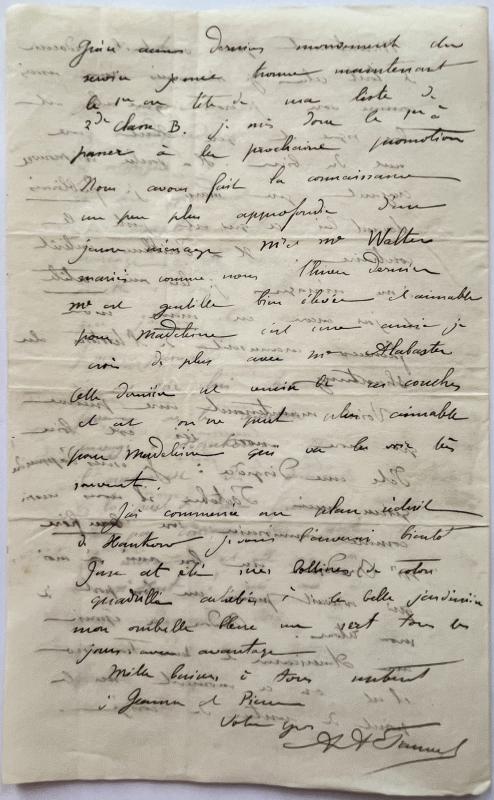 Grâce aux derniers mouvement du
service je me trouve maintenant
le 1er en tête de ma liste de
2de Classe B. je suis donc le 1er à
passer à la prochaine promotion
Nous avons fait la connaissance
un peu plus approfondie d'un
jeune ménage Mr et Me Walter
mariés comme nous l'hiver dernier
Me est gentille bien élevée et aimable
pour Madeleine c'est une amie je
crois de plus avec Me Alabaster
cette dernière est remise de ses couches
et est on ne peut plus aimable
pour Madeleine qui va la voir très
souvent.
J'ai commencé un plan réduit
de Hankow je vous l'enverrai bientôt
J'use cet été mes bottines de coton
quadrillé achetées à la belle jardinière
mon ombrelle bleue me sert tous les
jours avec avantage
Mille baisers à tous surtout
à Jeanne et Pierre
Votre